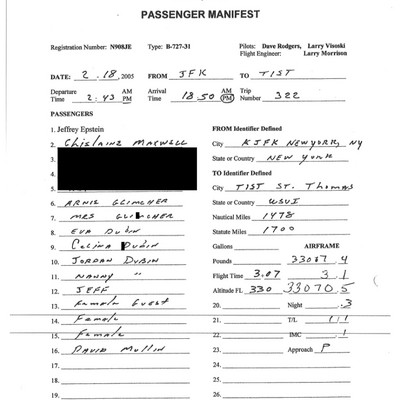 PASSENGER MANIFEST
Registration Number: N908JE Type: B-727-31 Pilots: Dave Rodgers, Larry Visoski
Flight Engineer: Larry Morrison
DATE: 2.18,2005 FROM JFK TO TIST
Departure Time 2:43 AM PM Arrival Time 18:50 AM PM Trip Number 322
PASSENGERS
1. Jeffrey Epstein FROM Identifier Defined
2. Ghislaine Maxwell City KJFK New York, NY
3. State or Country New York
4. TO Identifier Defined
5. City TIST St. Thomas
6. Arnie Glimcher State or Country USVI
7. Mrs Glimcher Nautical Miles 1478
8. Eva Dubin Statute Miles 1700
9. Celina Dubin Gallons AIRFRAME
10. Jordan Dubin Pounds 33067.4
11. Nanny " Flight Time 3.07 3.1
12. Jeff Altitude FL 330 33070.5
13. Female Guest 20. Night .3
14. Female 21. T/L 1:1
15. Female 22. IMC .1
16. David Mullin 23. Approach P
17. 24.
18. 25.
19. 26.